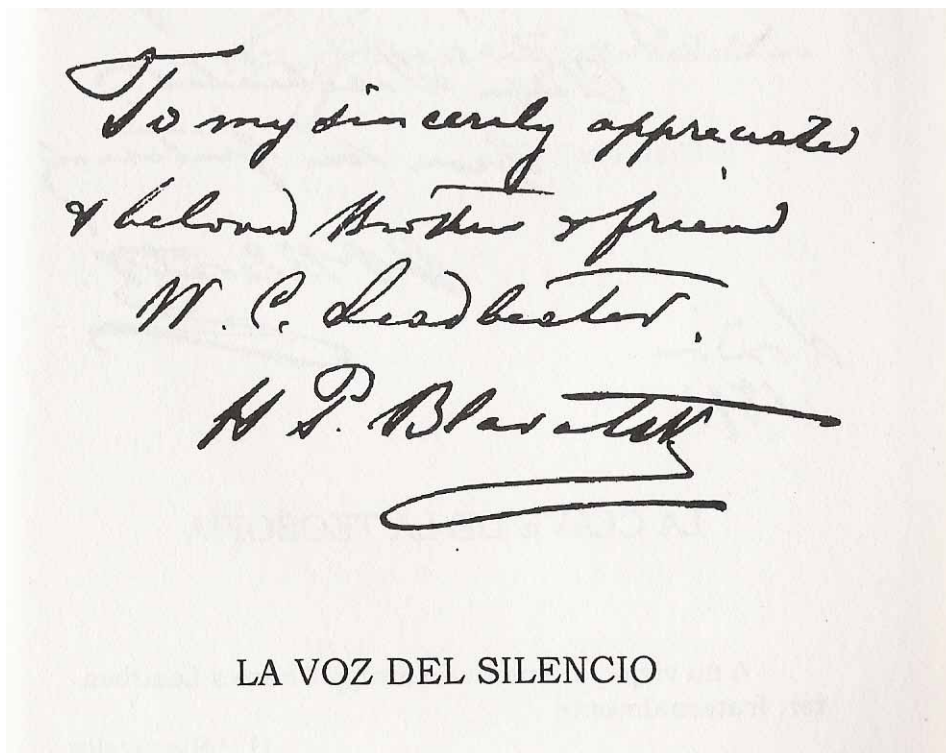 To my sincerely appreciated
& beloved Brother & friend
W. C. Leadbeater.
H P. Blavatsky
LA VOZ DEL SILENCIO